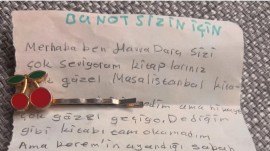 BU NOT SİZİN İÇİN
Merhaba ben Havva Dara Sizi
çok seviyorum kitaplarınız
çok güzel Masalistanbul kita
ama
çok güzel geçiyo. Dediğim
gibi kitabı tam okumadım
Ama Kerem'in uyandığı sabah